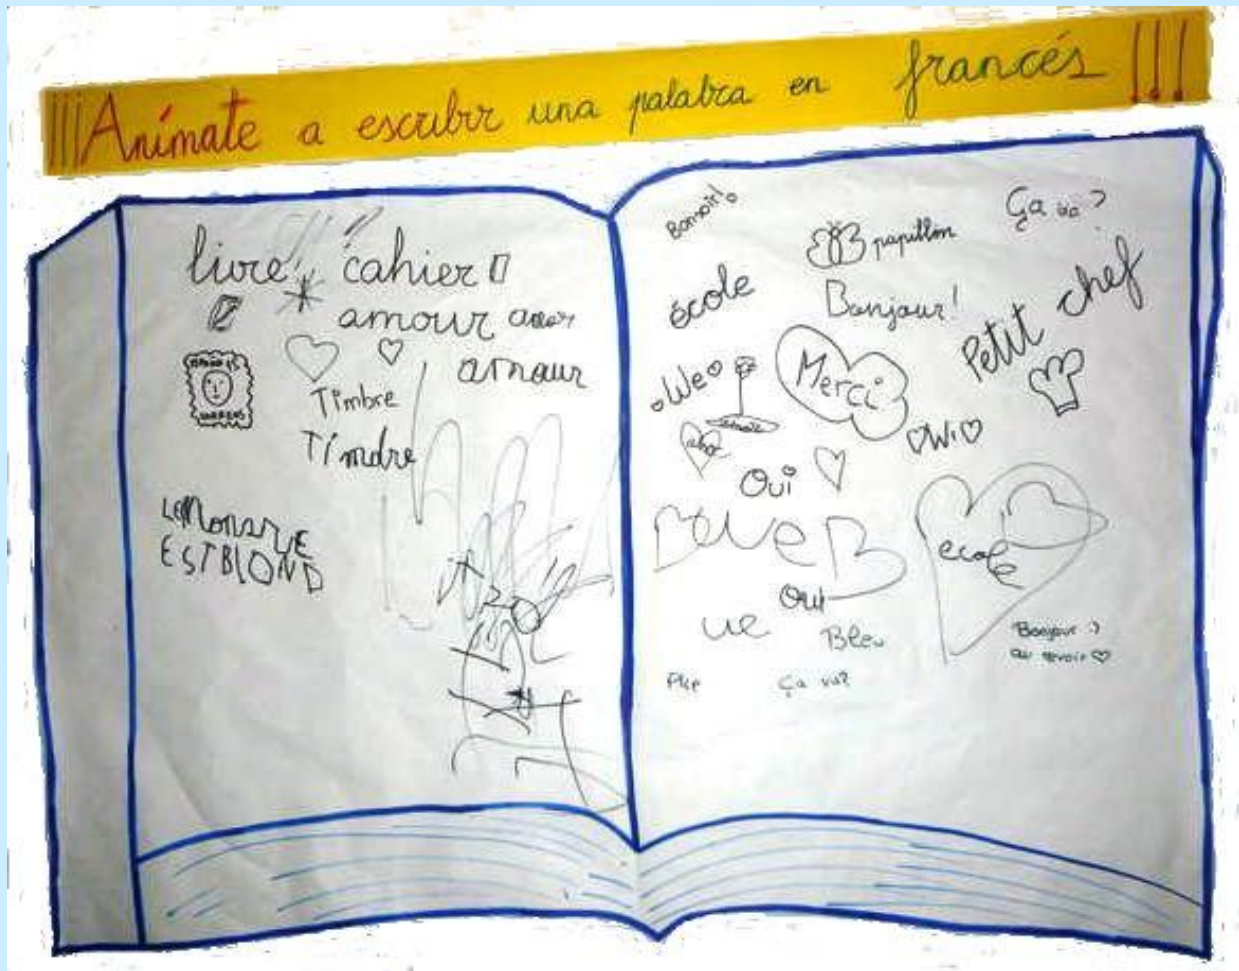 ¡¡¡Anímate a escribir una palabra en francés !!!
livre
cahier
amour amor
amour
Timbre
Timdre
LE Monsrue
EST BLOND
Bonsoir!
papillon
Ça va ?
école
Bonjour!
Petit chef
We
Merci
Wi
Oui
ecole
Oui
ue
Bleu
Bonjour :)
au revoir
Ça va?